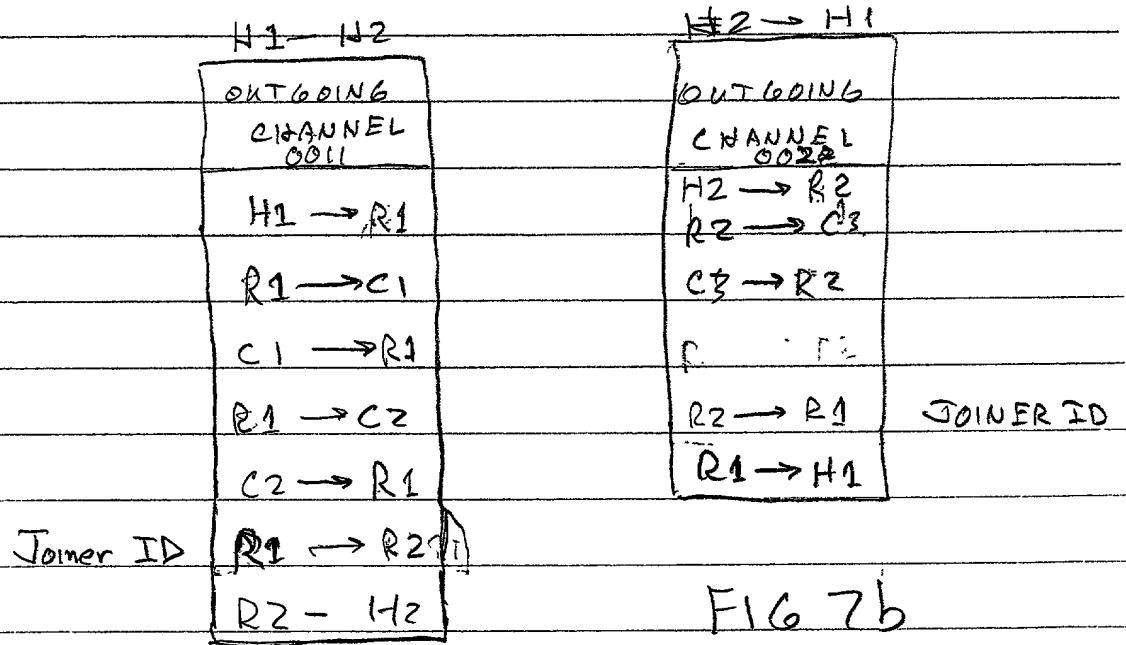 H1 — H2
OUTGOING
CHANNEL
0011
H1 → R1
R1 → C1
C1 → R1
R1 → C2
C2 → R1
Joiner ID R1 → R2
R2 - H2
H2 → H1
OUTGOING
CHANNEL
0022
H2 → R2
R2 → C3
C3 → R2
R2 → R1 JOINER ID
R1 → H1
FIG 7b